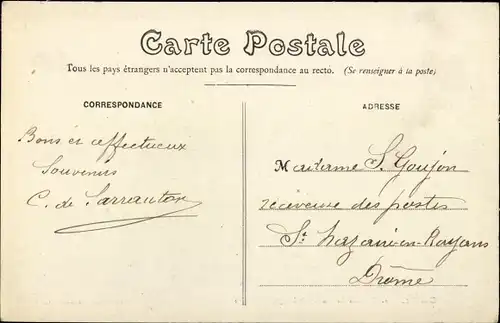 Carte Postale
Tous les pays étrangers n'acceptent pas la correspondance au recto. (Se renseigner à la poste)
CORRESPONDANCE
ADRESSE
Bons et affectueux
Souvenirs
C. de Sarrauton
Madame S. Goujon
receveuse des postes
St Nazaire-en-Royans
Drôme